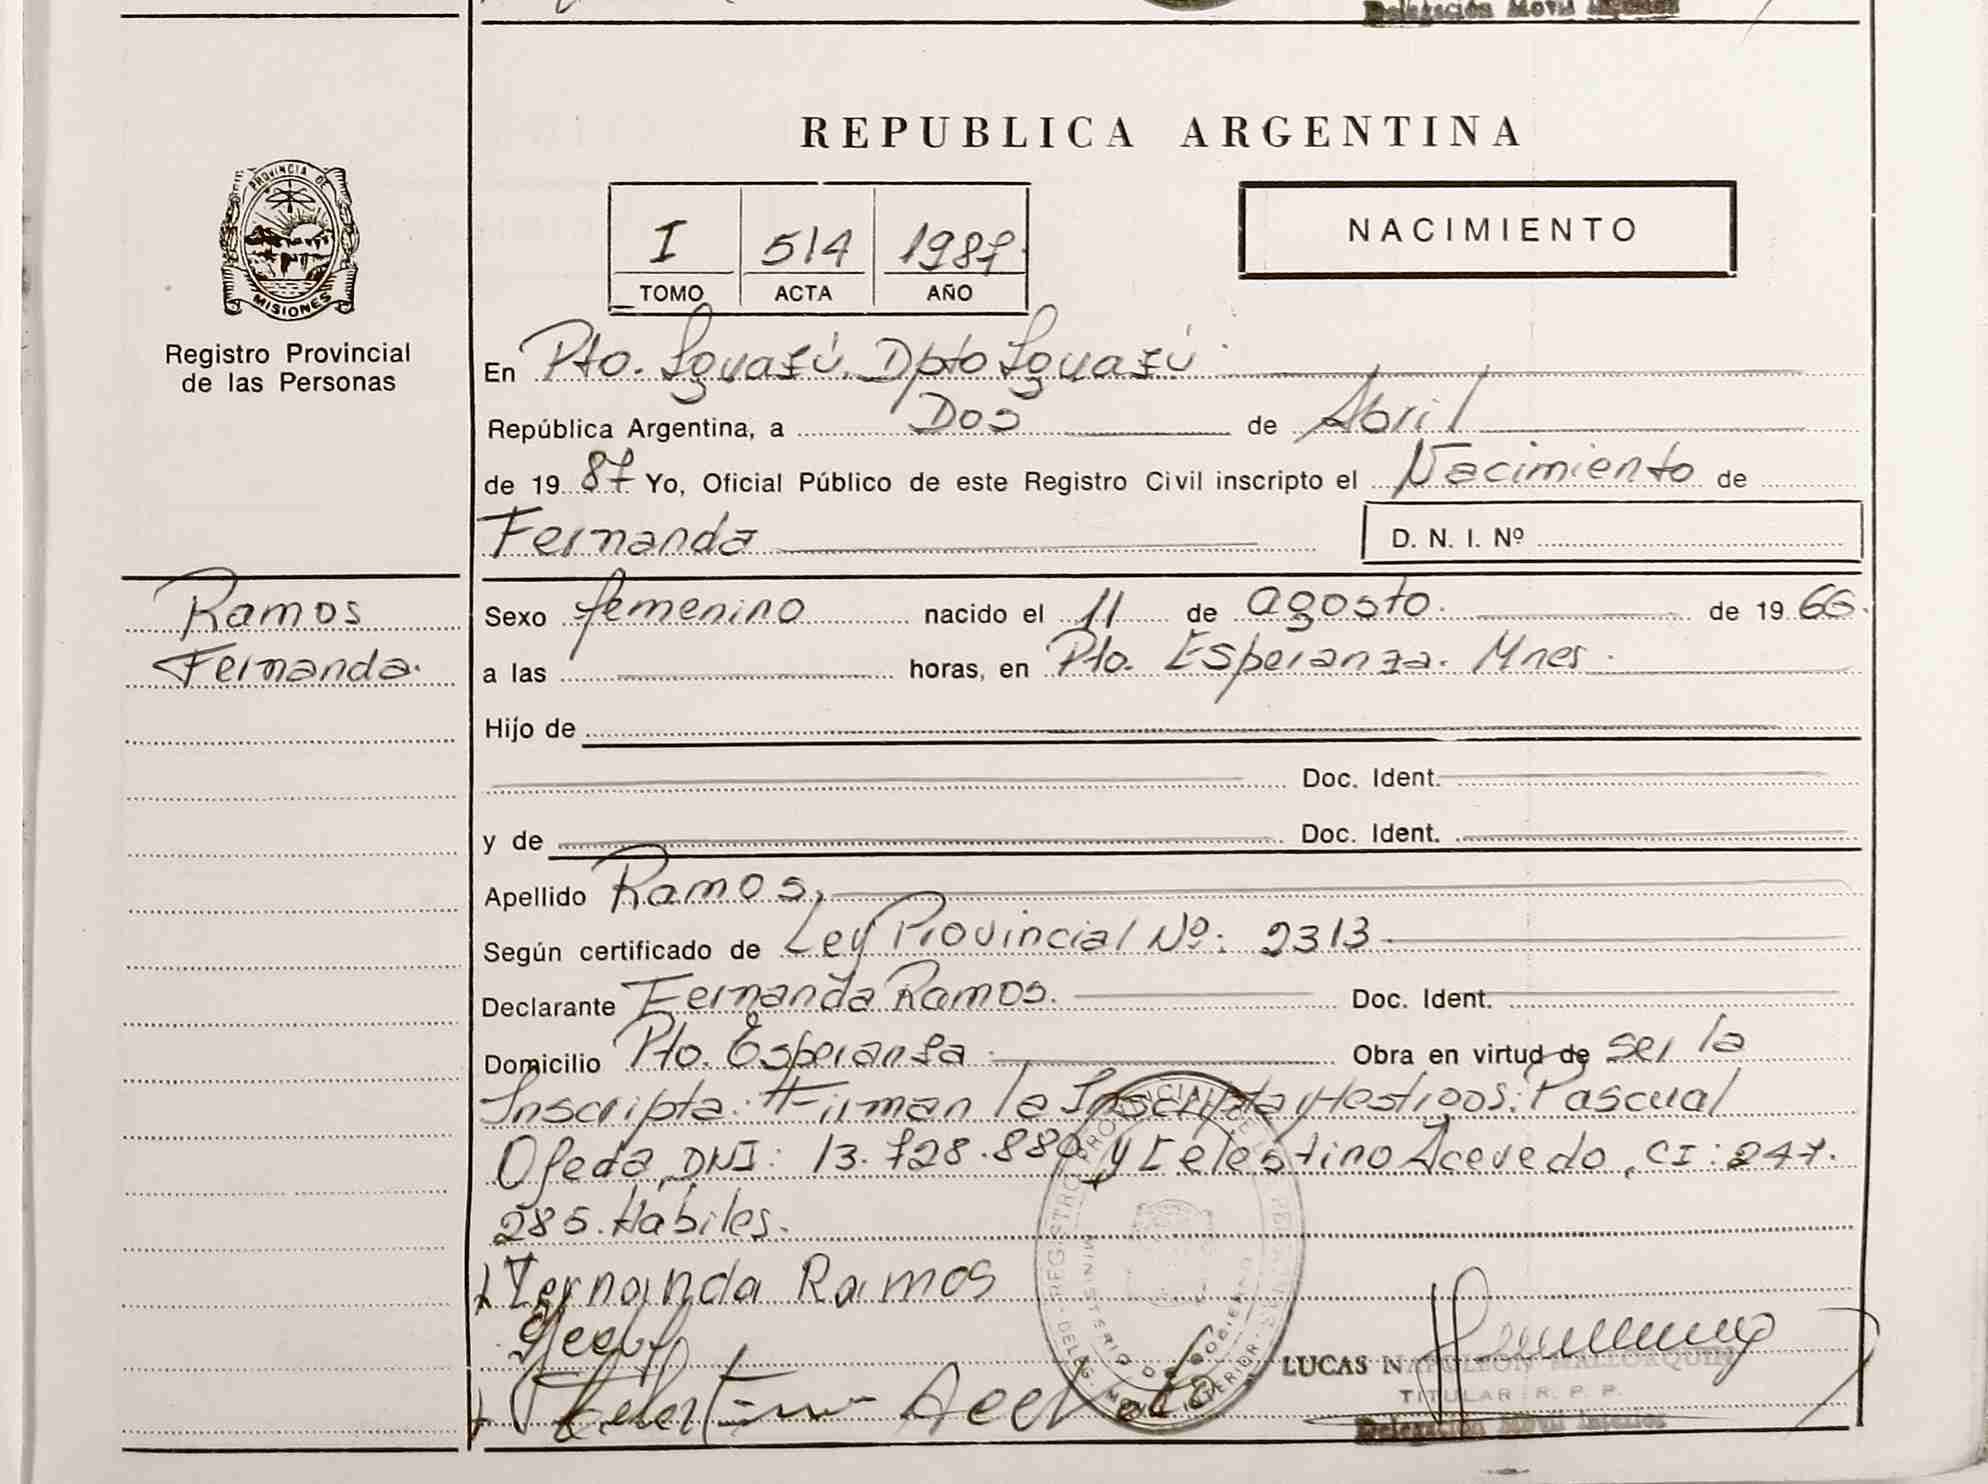 Delegación Movil Interior
REPUBLICA ARGENTINA
PROVINCIA DE
MISIONES
Registro Provincial
de las Personas
I 514 1987
TOMO ACTA AÑO
NACIMIENTO
En Pto. Iguazú. Dpto Iguazú
República Argentina, a Dos de Abril
de 1987 Yo, Oficial Público de este Registro Civil inscripto el Nacimiento de
Fernanda D. N. I. Nº
Ramos
Fernanda.
Sexo femenino nacido el 11 de agosto. de 1966.
a las horas, en Pto. Esperanza. Mnes.
Hijo de
Doc. Ident.
y de Doc. Ident.
Apellido Ramos,
Según certificado de Ley Provincial Nº: 2313
Declarante Fernanda Ramos. Doc. Ident.
Domicilio Pto. Esperanza. Obra en virtud de ser la
Inscripta. Firman la Inscripta y testigos: Pascual
Ojeda, DNI: 13.728.880 y Celestino Acevedo, CI: 247.
285. Hábiles.
Fernanda Ramos
REGISTRO PROVINCIAL DE LAS PERSONAS
MINISTERIO DE GOBIERNO
DELEG. MOVIL INTERIOR
LUCAS NAPOLEON MALLORQUIN
TITULAR R. P. P.
Delegación Movil Interior